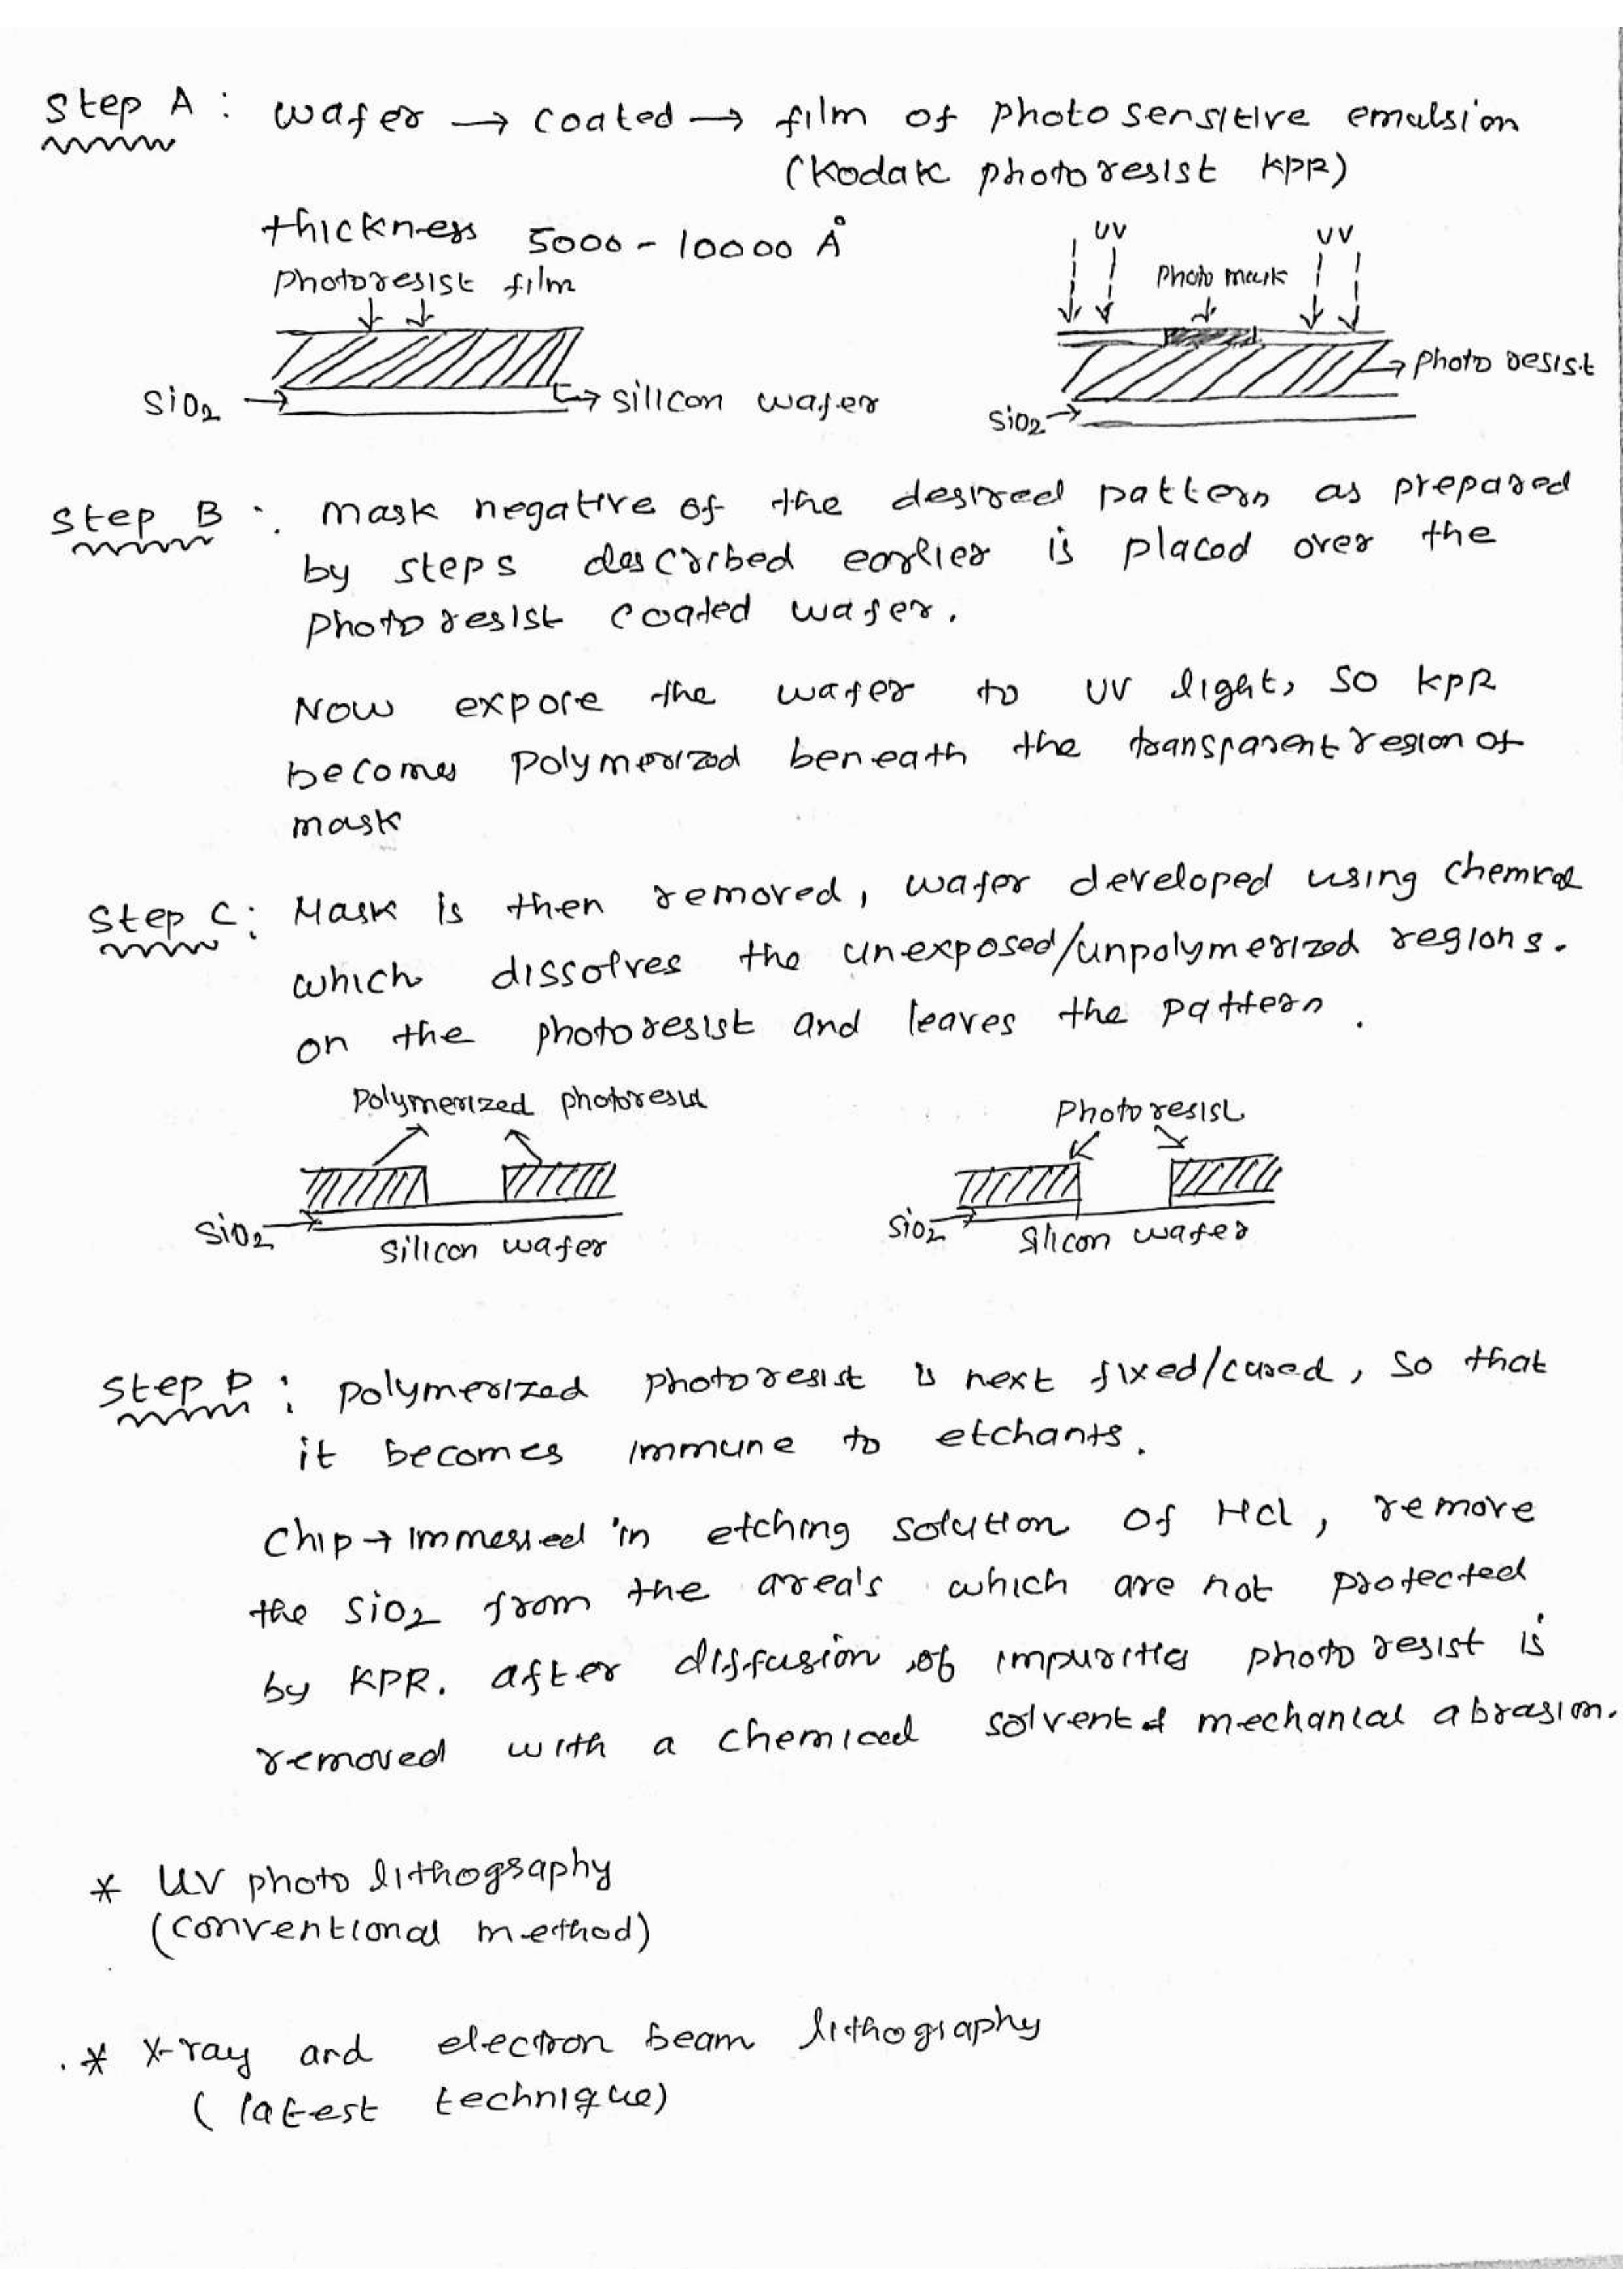 Step A : wafer → coated → film of photosensitive emulsion
(Kodak photoresist KPR)
thickness 5000 - 10000 Å
Photoresist film
SiO2
silicon wafer
UV
UV
Photo mask
Photo resist
SiO2
Step B : mask negative of the desired pattern as prepared
by steps described earlier is placed over the
photoresist coated wafer.
Now expose the wafer to UV light, so KPR
becomes polymerized beneath the transparent region of
mask
Step C : Mask is then removed, wafer developed using chemical
which dissolves the unexposed/unpolymerized regions.
on the photoresist and leaves the pattern.
Polymerized photoresist
SiO2
silicon wafer
Photoresist
SiO2
Silicon wafer
Step D : polymerized photoresist is next fixed/cured, so that
it becomes immune to etchants.
Chip → immersed in etching solution of HCl, remove
the SiO2 from the area's which are not protected
by KPR. after diffusion of impurities photoresist is
removed with a chemical solvent & mechanial abrasion.
* UV photo lithography
(conventional method)
* X-ray and electron beam lithography
(latest technique)